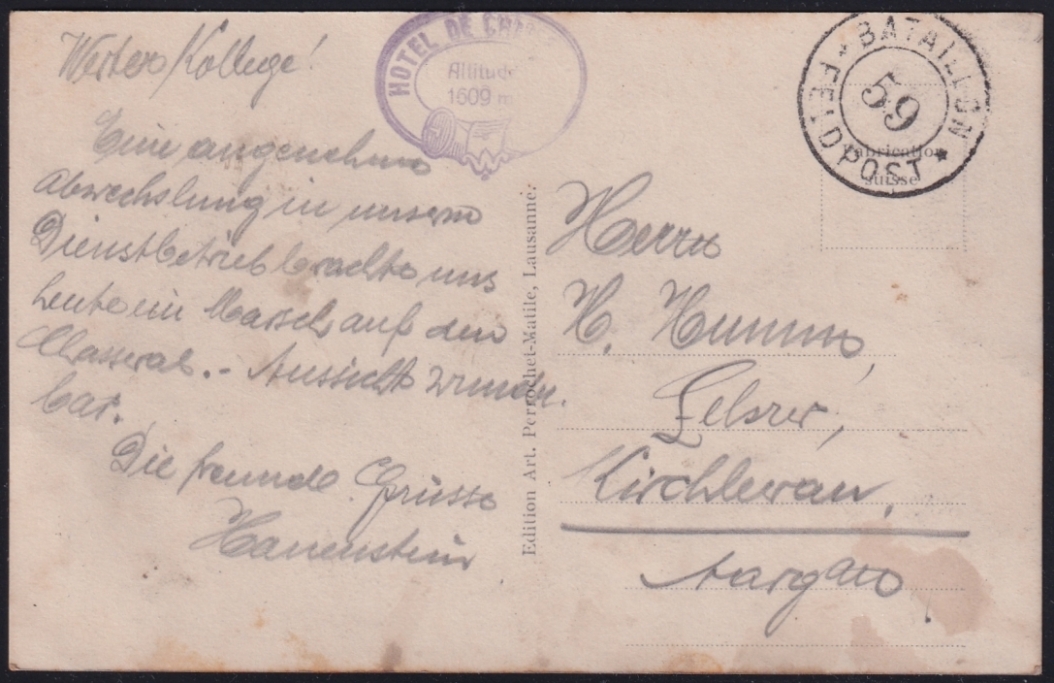 Werter Kollege!
Eine angenehme
Abwechslung in unserm
Dienstbetrieb brachte uns
heute ein Marsch auf den
Chasseral. - Aussicht wunder-
bar.
Die freundl. Grüsse
Hauenstein
HOTEL DE
Altitude
1609 m
Edition Art. Perrochet-Matile, Lausanne.
BATAILLON
59
FELDPOST
Fabrication
suisse
Herrn
H. Hummel,
Lehrer,
Kirchleerau,
Aargau